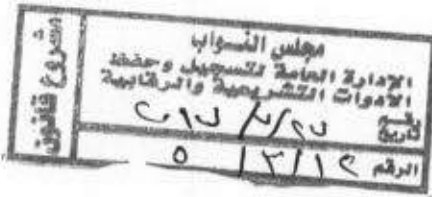 مشروع قانون
مجلس النواب
الإدارة العامة لتسجيل وحفظ
الأدوات التشريعية والرقابية
بقيم
تاريخ
الرقم ٥ / ٣ / ١٢